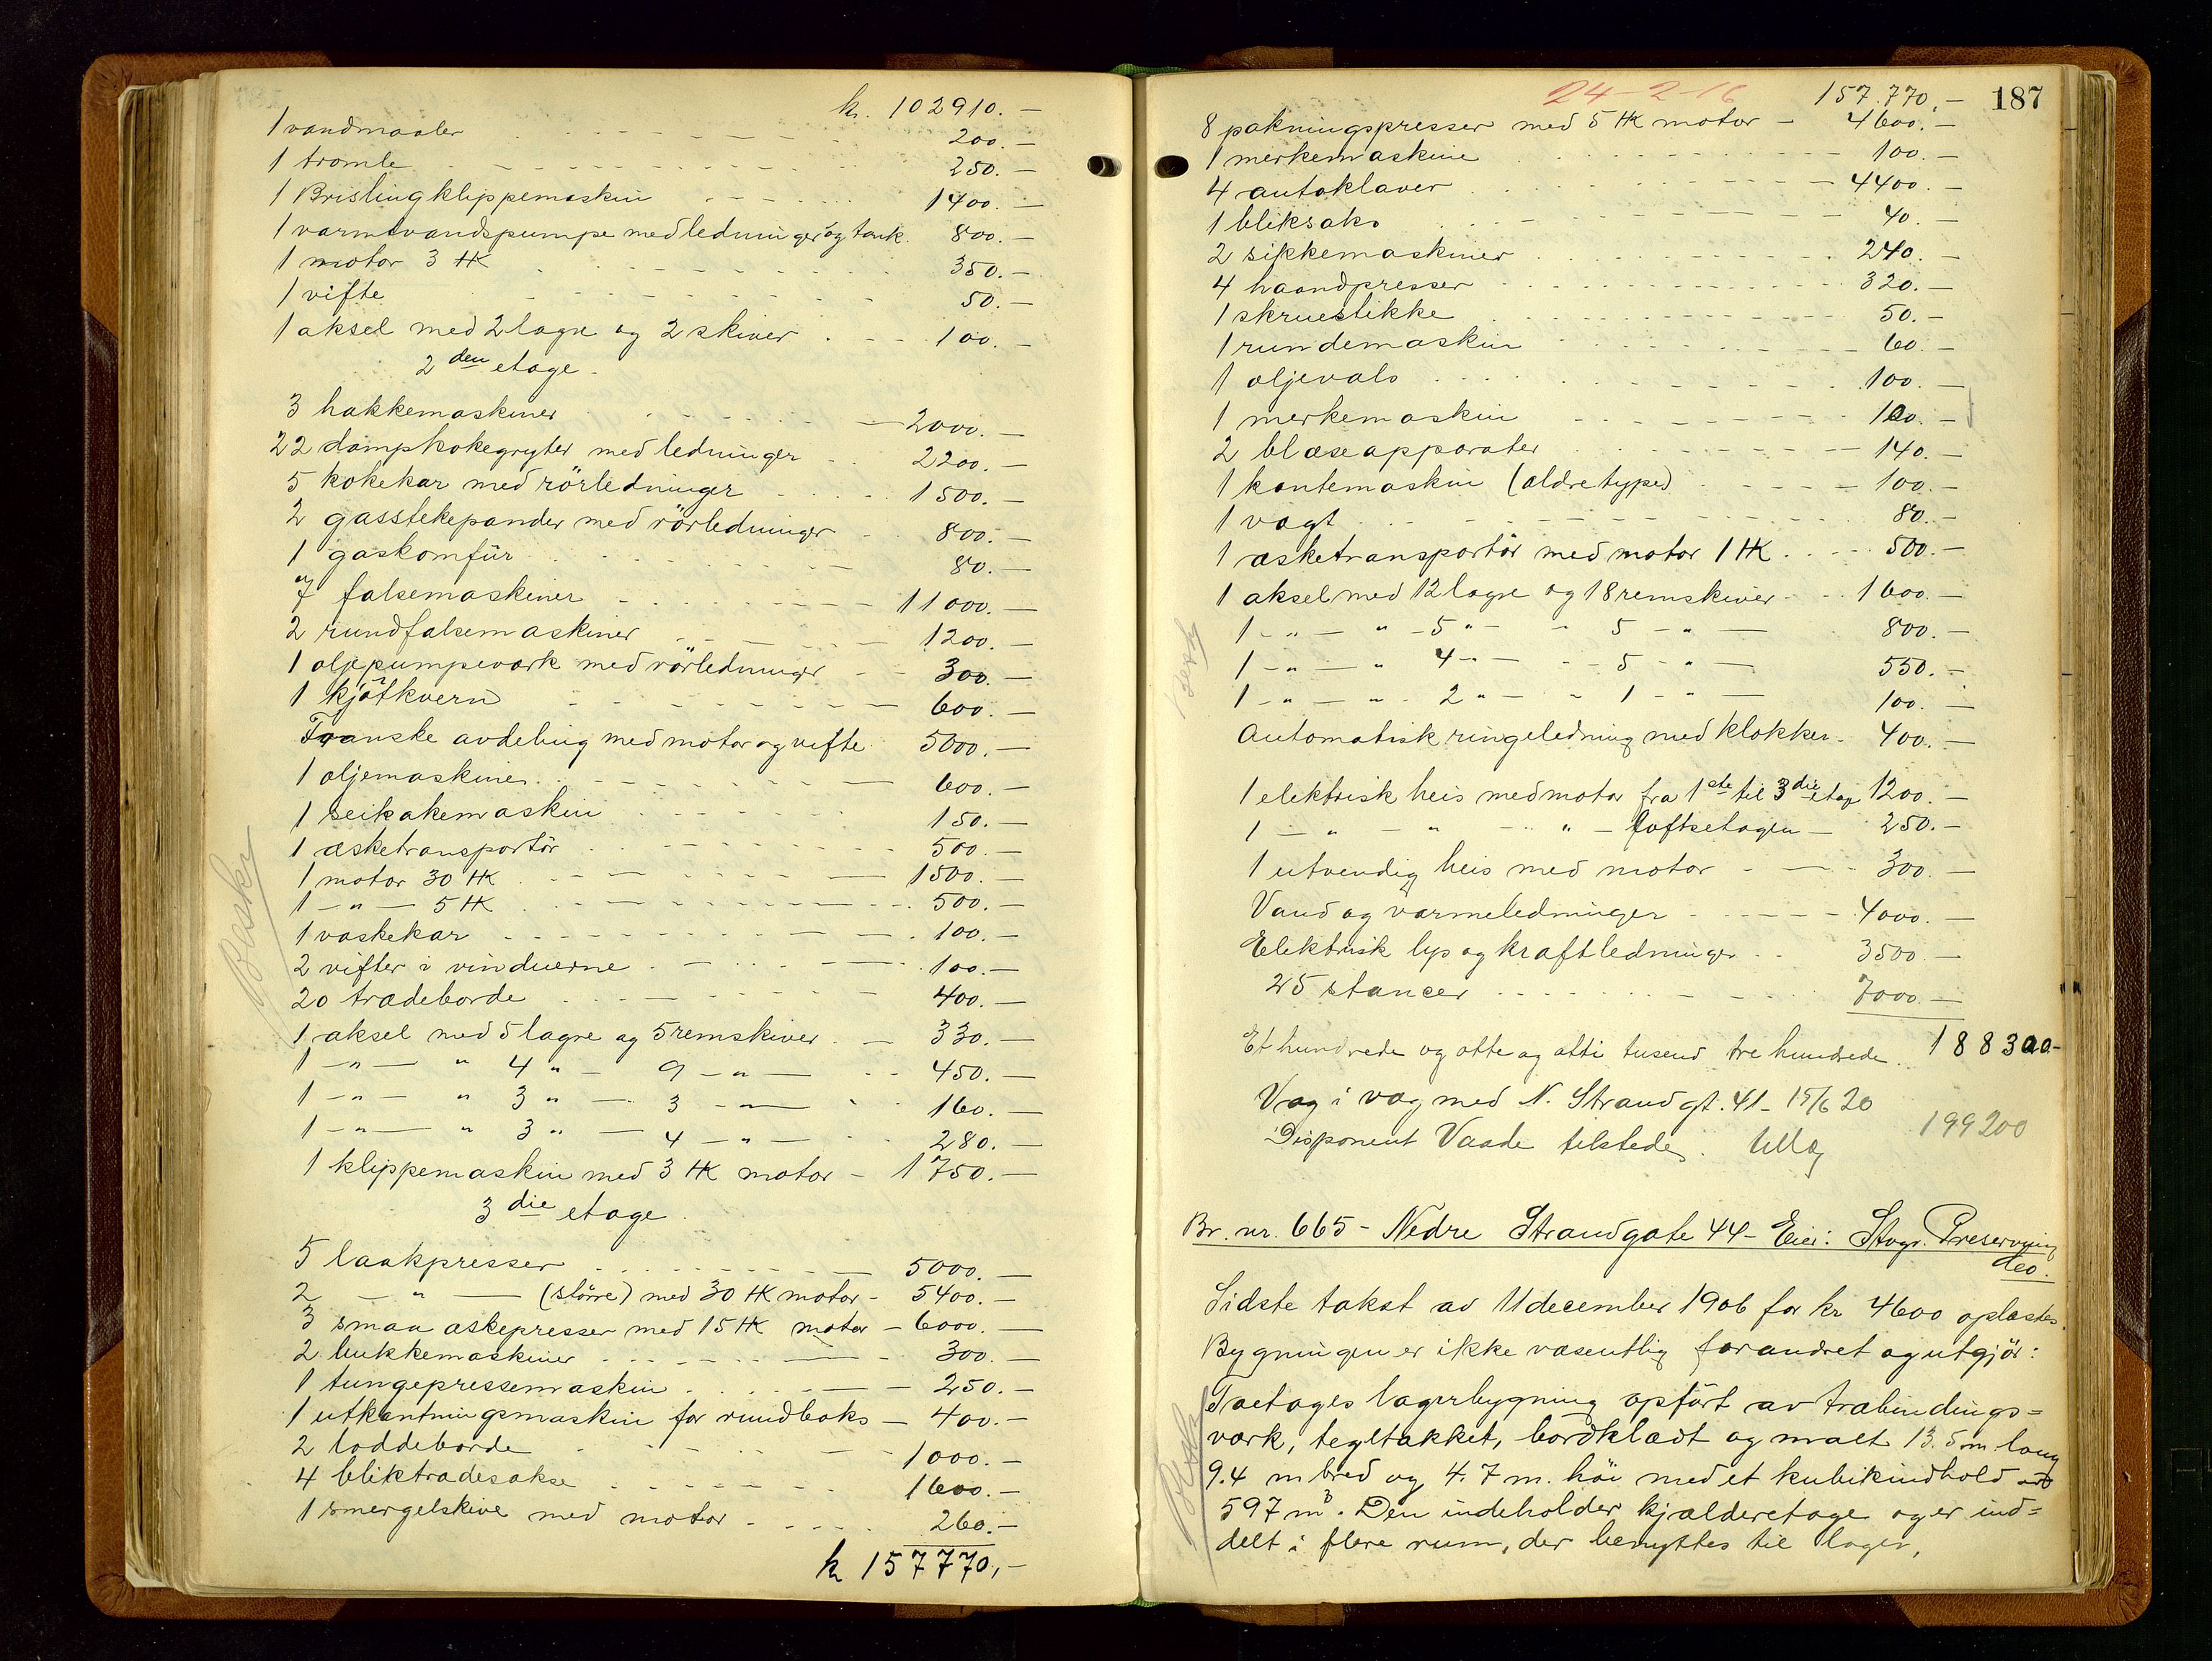 kr. 102910.—
1 vandmaaler 200.—
1 tromle 250.—
1 Brislingklippemaskin 1400.—
1 varmtvandspumpe med ledninger og tank. 800.—
1 motor 3 HK 350.—
1 vifte 50.—
1 aksel med 2 lagre og 2 skiver 100.—
2den etage.
3 hakkemaskiner 2000.—
22 dampkokegryter med ledninger 2200.—
5 kokekar med rörledninger 1500.—
2 gasstekepander med rörledninger 800.—
1 gaskomfür 80.—
7 falsemaskiner 11000.—
2 rundfalsemaskiner 1200.—
1 oljepumpeværk med rörledninger 300.—
1 kjötkvern 600.—
Franske avdeling med motor og vifte 5000.—
1 oljemaskiner 600.—
1 seikakemaskin 150.—
1 æsketransportör 500.—
1 motor 30 HK 1500.—
1 —"— 5 HK 500.—
1 vaskekar 100.—
2 vifter i vinduerne 100.—
20 trædeborde 400.—
1 aksel med 5 lagre og 5 remskiver 330.—
1 —"— " 4 "— 9 —"— 450.—
1 —"— " 3 "— 3 —"— 160.—
1 —"— " 3 "— 4 —"— 280.—
1 klippemaskin med 3 HK motor 1750.—
3die etage.
5 laakpresser 5000.—
2 —"— (större) med 30 HK motor 5400.—
3 smaa æskepresser med 15 HK motor 6000.—
2 bukkemaskiner 300.—
1 tungepressemaskin 250.—
1 utkantningsmaskin for rundboks 400.—
2 loddeborde 1000.—
4 bliktrædesakse 1600.—
1 smergelskive med motor 260.—
kr 157770,—
Beskr
24-2-16
157.770,— 187
8 pakningspresser med 5 HK motor 4600.—
1 merkemaskine 100.—
4 autoklaver 4400.—
1 bliksaks 40.—
2 sikkemaskiner 240.—
4 haandpresser 320.—
1 skruestikke 50.—
1 rundemaskin 60.—
1 oljevals 100.—
1 merkemaskin 100.—
2 blæseapparater 140.—
1 kantemaskin (ældre type) 100.—
1 vægt 80.—
1 æsketransportör med motor 1 HK 500.—
1 aksel med 12 lagre og 18 remskiver 1600.—
1 —"— " 5 "— " 5 —"— 800.—
1 —"— " 4 "— " 5 —"— 550.—
1 —"— " 2 "— " 1 —"— 100.—
Automatisk ringeledning med klokker 400.—
1 elektrisk heis med motor fra 1ste til 3die etage 1200.—
1 — " — " — " — loftsetagen — 250.—
1 utvendig heis med motor 300.—
Vand og varmeledninger 4000.—
Elektrisk lys og kraftledninger 3500.—
25 stancer 7000.—
Et hundrede og otte og otti tusend tre hundrede. 188300—
Væg i væg med N. Strandgt. 41 - 15/6 20
199200
Disponent Vaade tilstede.
Br. nr. 665 - Nedre Strandgate 44 - Eier: Stvgr. Preserving
Co.
Sidste takst av 11 december 1906 for kr 4600 oplæstes.
Bygningen er ikke væsentlig forandret og utgjör:
Toetages lagerbygning opfört av træbindings=
værk, tegltækket, bordklædt og malt 13.5 m lang
9.4 m bred og 4.7 m. höi med et kubikindhold av
597 m³. Den indeholder kjælderetage og er ind=
delt i flere rum, der benyttes til lager,